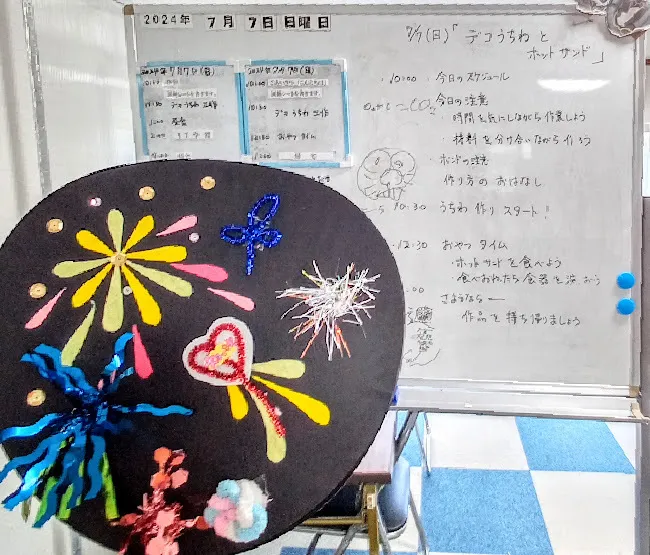 2024年 7月 7日 日曜日
7/7(日)「デコうちわと
ホットサンド」
10:00 今日のスケジュール
今日の注意
・時間を気にしながら作業しよう
・材料を分け合いながら作ろう
・ボンドの注意
作り方のおはなし
10:30 うちわ作りスタート!
12:30 おやつタイム
・ホットサンドを食べよう
・食べおわったら食器を洗おう
:00 さようならー
作品を持ち帰りましょう
2024年7月7日(日)
デコうちわ工作
2024年7月7日(日)
10:30
デコうちわ工作
おやつタイム